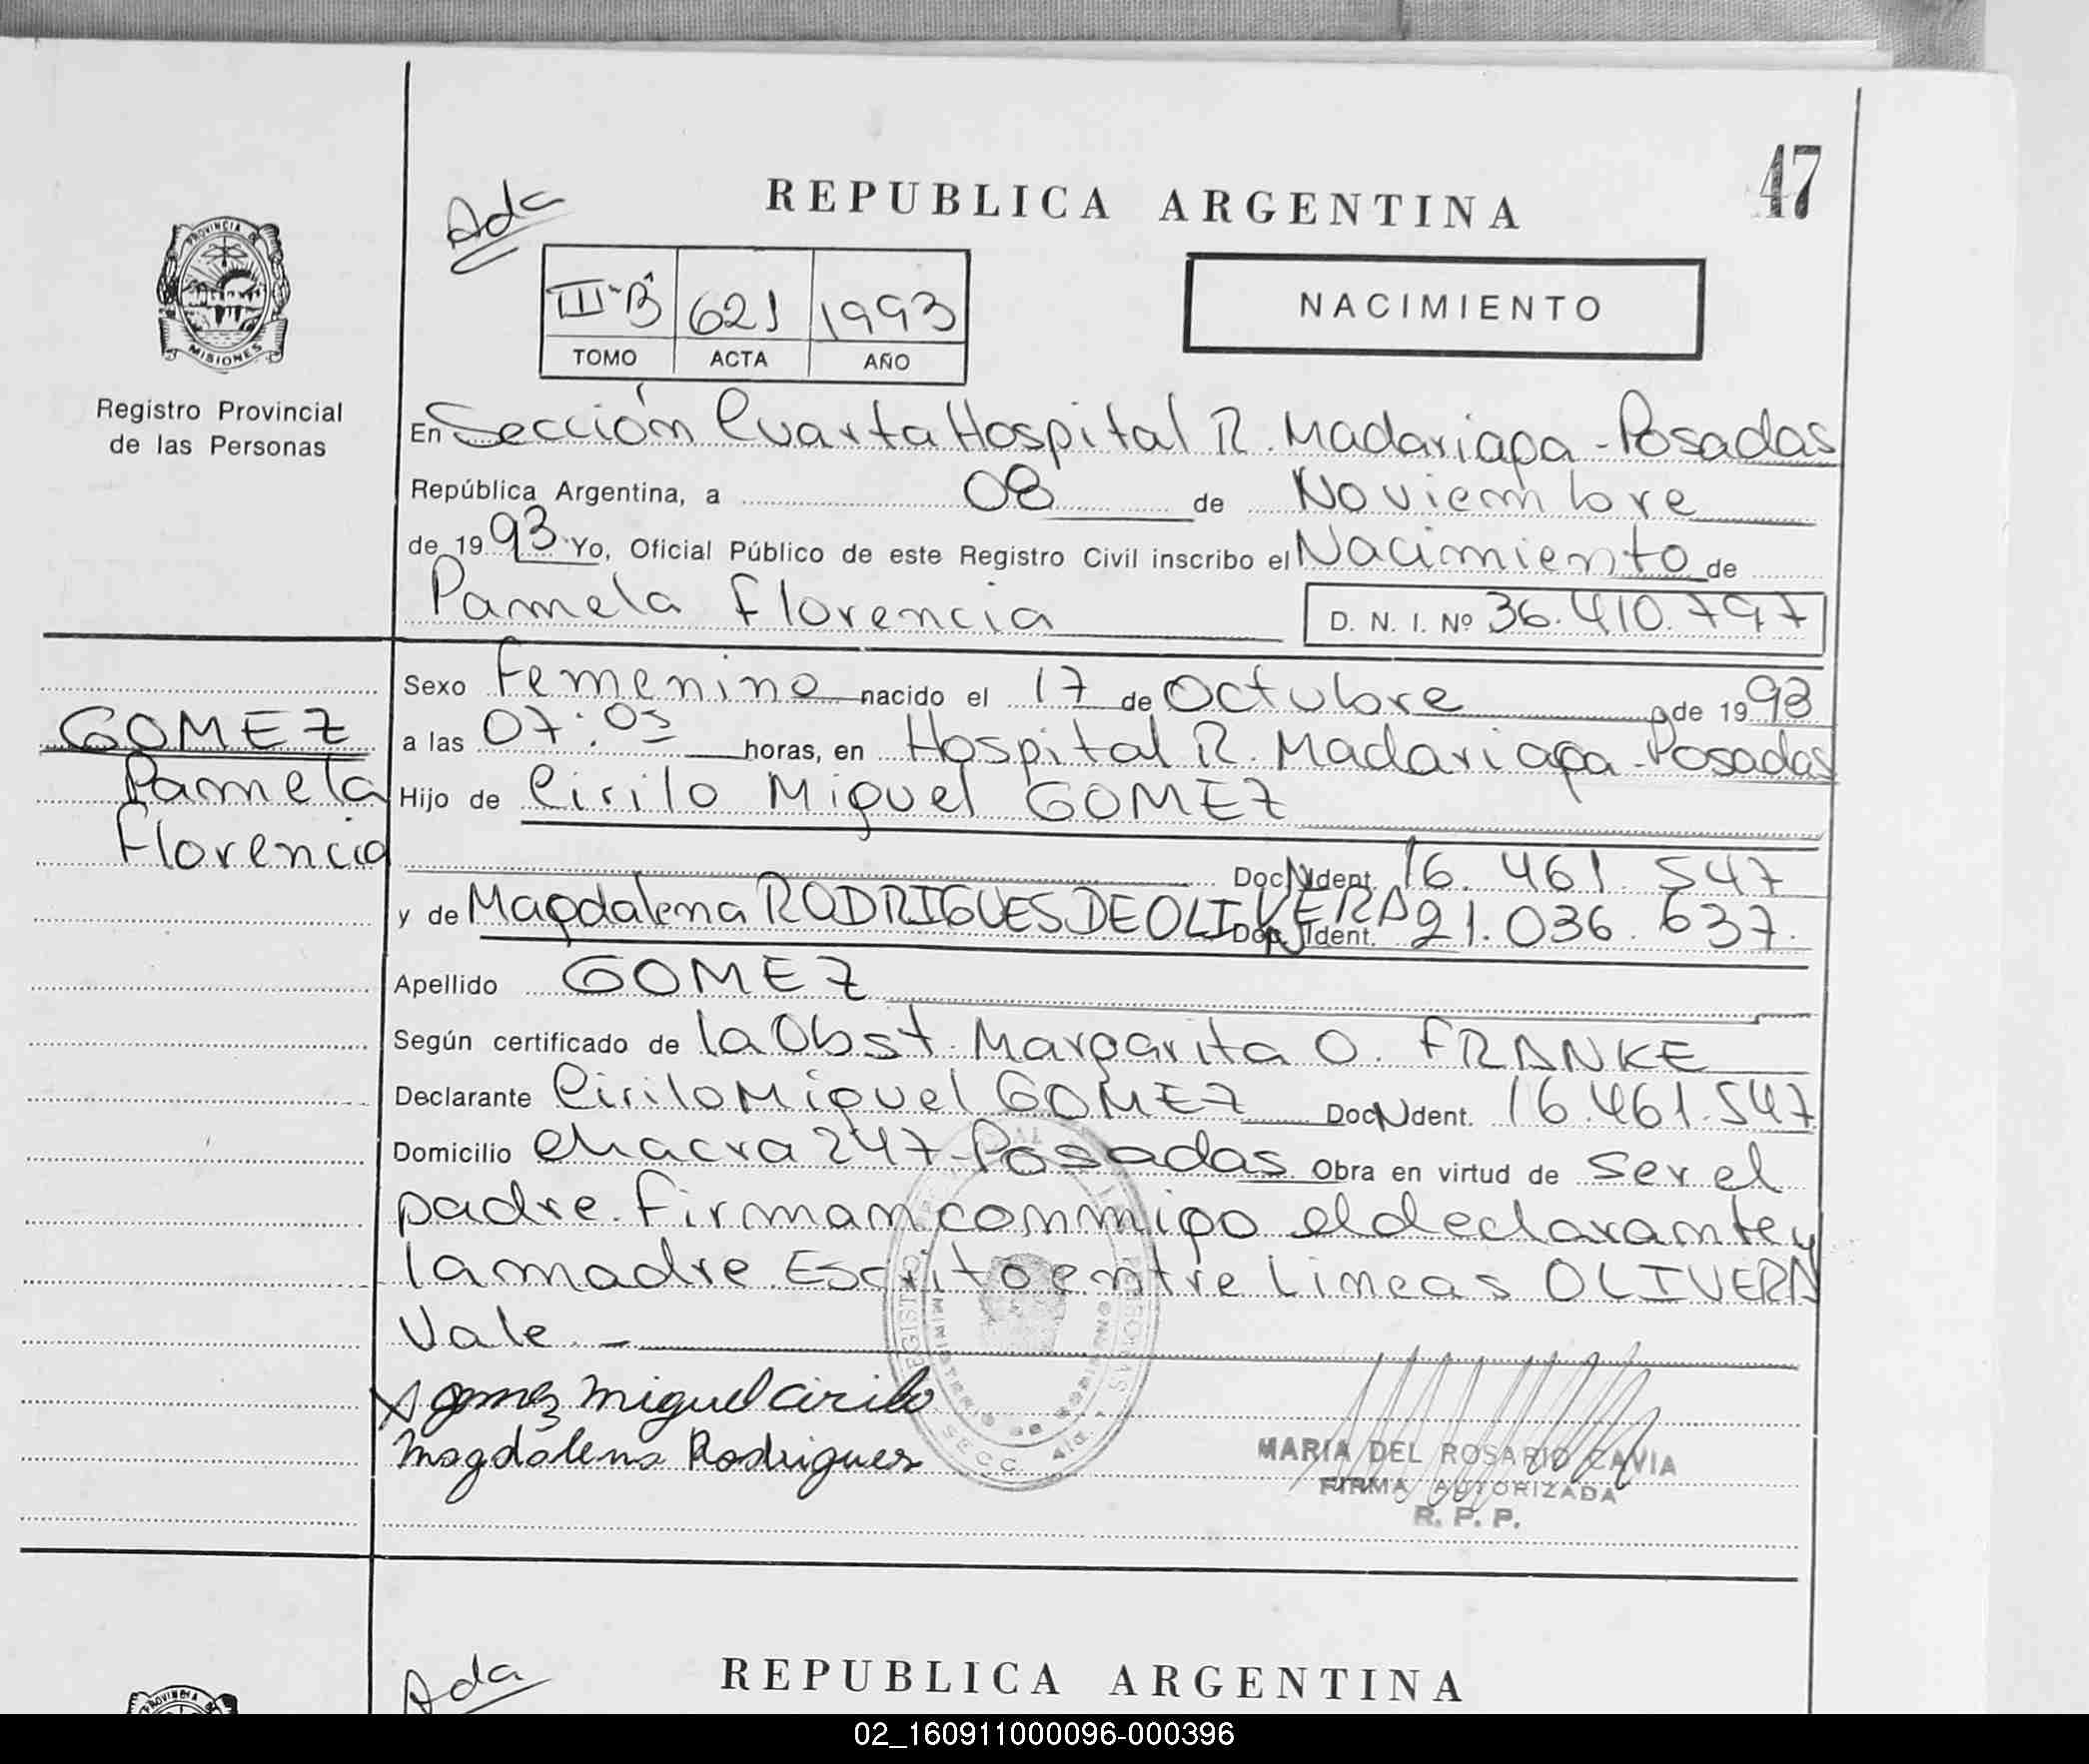 47
Ada
REPUBLICA ARGENTINA
PROVINCIA DE
MISIONES
Registro Provincial
de las Personas
III-B 621 1993
TOMO ACTA AÑO
NACIMIENTO
En Sección Cuarta Hospital R. Madariaga - Posadas
República Argentina, a 08 de Noviembre
de 1993 Yo, Oficial Público de este Registro Civil inscribo el Nacimiento de
Pamela Florencia D. N. I. Nº 36.410.797
Sexo Femenino nacido el 17 de Octubre de 1993
GOMEZ
Pamela
Florencia
a las 07:05 horas, en Hospital R. Madariaga - Posadas
Hijo de Cirilo Miguel GOMEZ
Doc N Ident. 16.461.547
y de Magdalena RODRIGUES DE OLIVERA Doc N Ident. 21.036.637.
Apellido GOMEZ
Según certificado de la Obst. Margarita O. FRANKE
Declarante Cirilo Miguel GOMEZ Doc N Ident. 16.461.547
Domicilio Chacra 247 - Posadas Obra en virtud de ser el
padre. Firman conmigo el declarante y
la madre. Escrito entre Lineas OLIVERA
Vale. -
Gomez Miguel Cirilo
Magdalena Rodrigues
MARIA DEL ROSARIO CAVIA
FIRMA AUTORIZADA
R. P. P.
Ada
REPUBLICA ARGENTINA
02_160911000096-000396